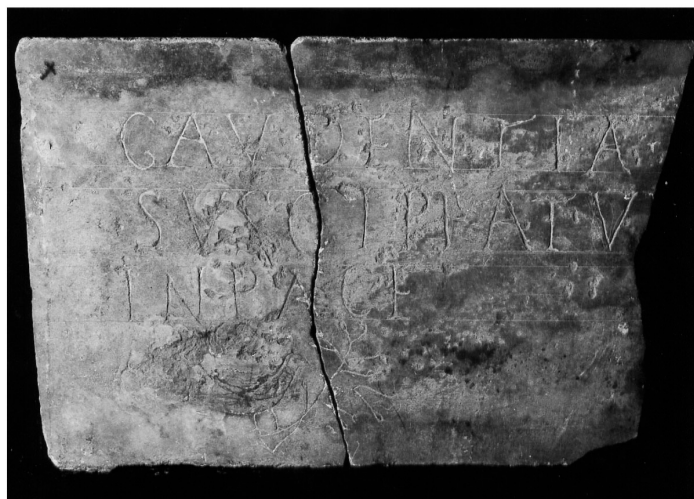 GAVDENTIA
SVSCIPIATV
IN PACE